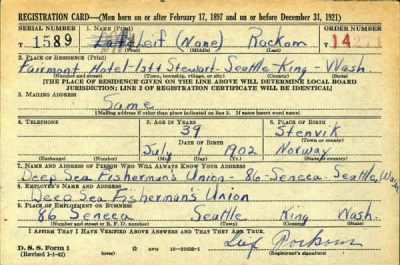 REGISTRATION CARD—(Men born on or after February 17, 1897 and on or before December 31, 1921)
SERIAL NUMBER 1. NAME (Print) ORDER NUMBER
T 1589 Leif (None) Rockom T 14
(First) (Middle) (Last)
2. PLACE OF RESIDENCE (Print)
Fairmont Hotel-1st & Stewart-Seattle-King-Wash.
(Number and street) (Town, township, village, or city) (County) (State)
[THE PLACE OF RESIDENCE GIVEN ON THE LINE ABOVE WILL DETERMINE LOCAL BOARD
JURISDICTION; LINE 2 OF REGISTRATION CERTIFICATE WILL BE IDENTICAL]
3. MAILING ADDRESS
Same
[Mailing address if other than place indicated on line 2. If same insert word same]
4. TELEPHONE 5. AGE IN YEARS 6. PLACE OF BIRTH
39 Stenvik
DATE OF BIRTH (Town or county)
July 1 1902 Norway
(Exchange) (Number) (Mo.) (Day) (Yr.) (State or country)
7. NAME AND ADDRESS OF PERSON WHO WILL ALWAYS KNOW YOUR ADDRESS
Deep Sea Fisherman's Union - 86 Seneca-Seattle, Wash.
8. EMPLOYER'S NAME AND ADDRESS
Deep Sea Fisherman's Union
9. PLACE OF EMPLOYMENT OR BUSINESS
86 Seneca Seattle King Wash.
(Number and street or R. F. D. number) (Town) (County) (State)
I AFFIRM THAT I HAVE VERIFIED ABOVE ANSWERS AND THAT THEY ARE TRUE.
D. S. S. Form 1
(Revised 1-1-42) Leif Rockom
(Registrant's signature)